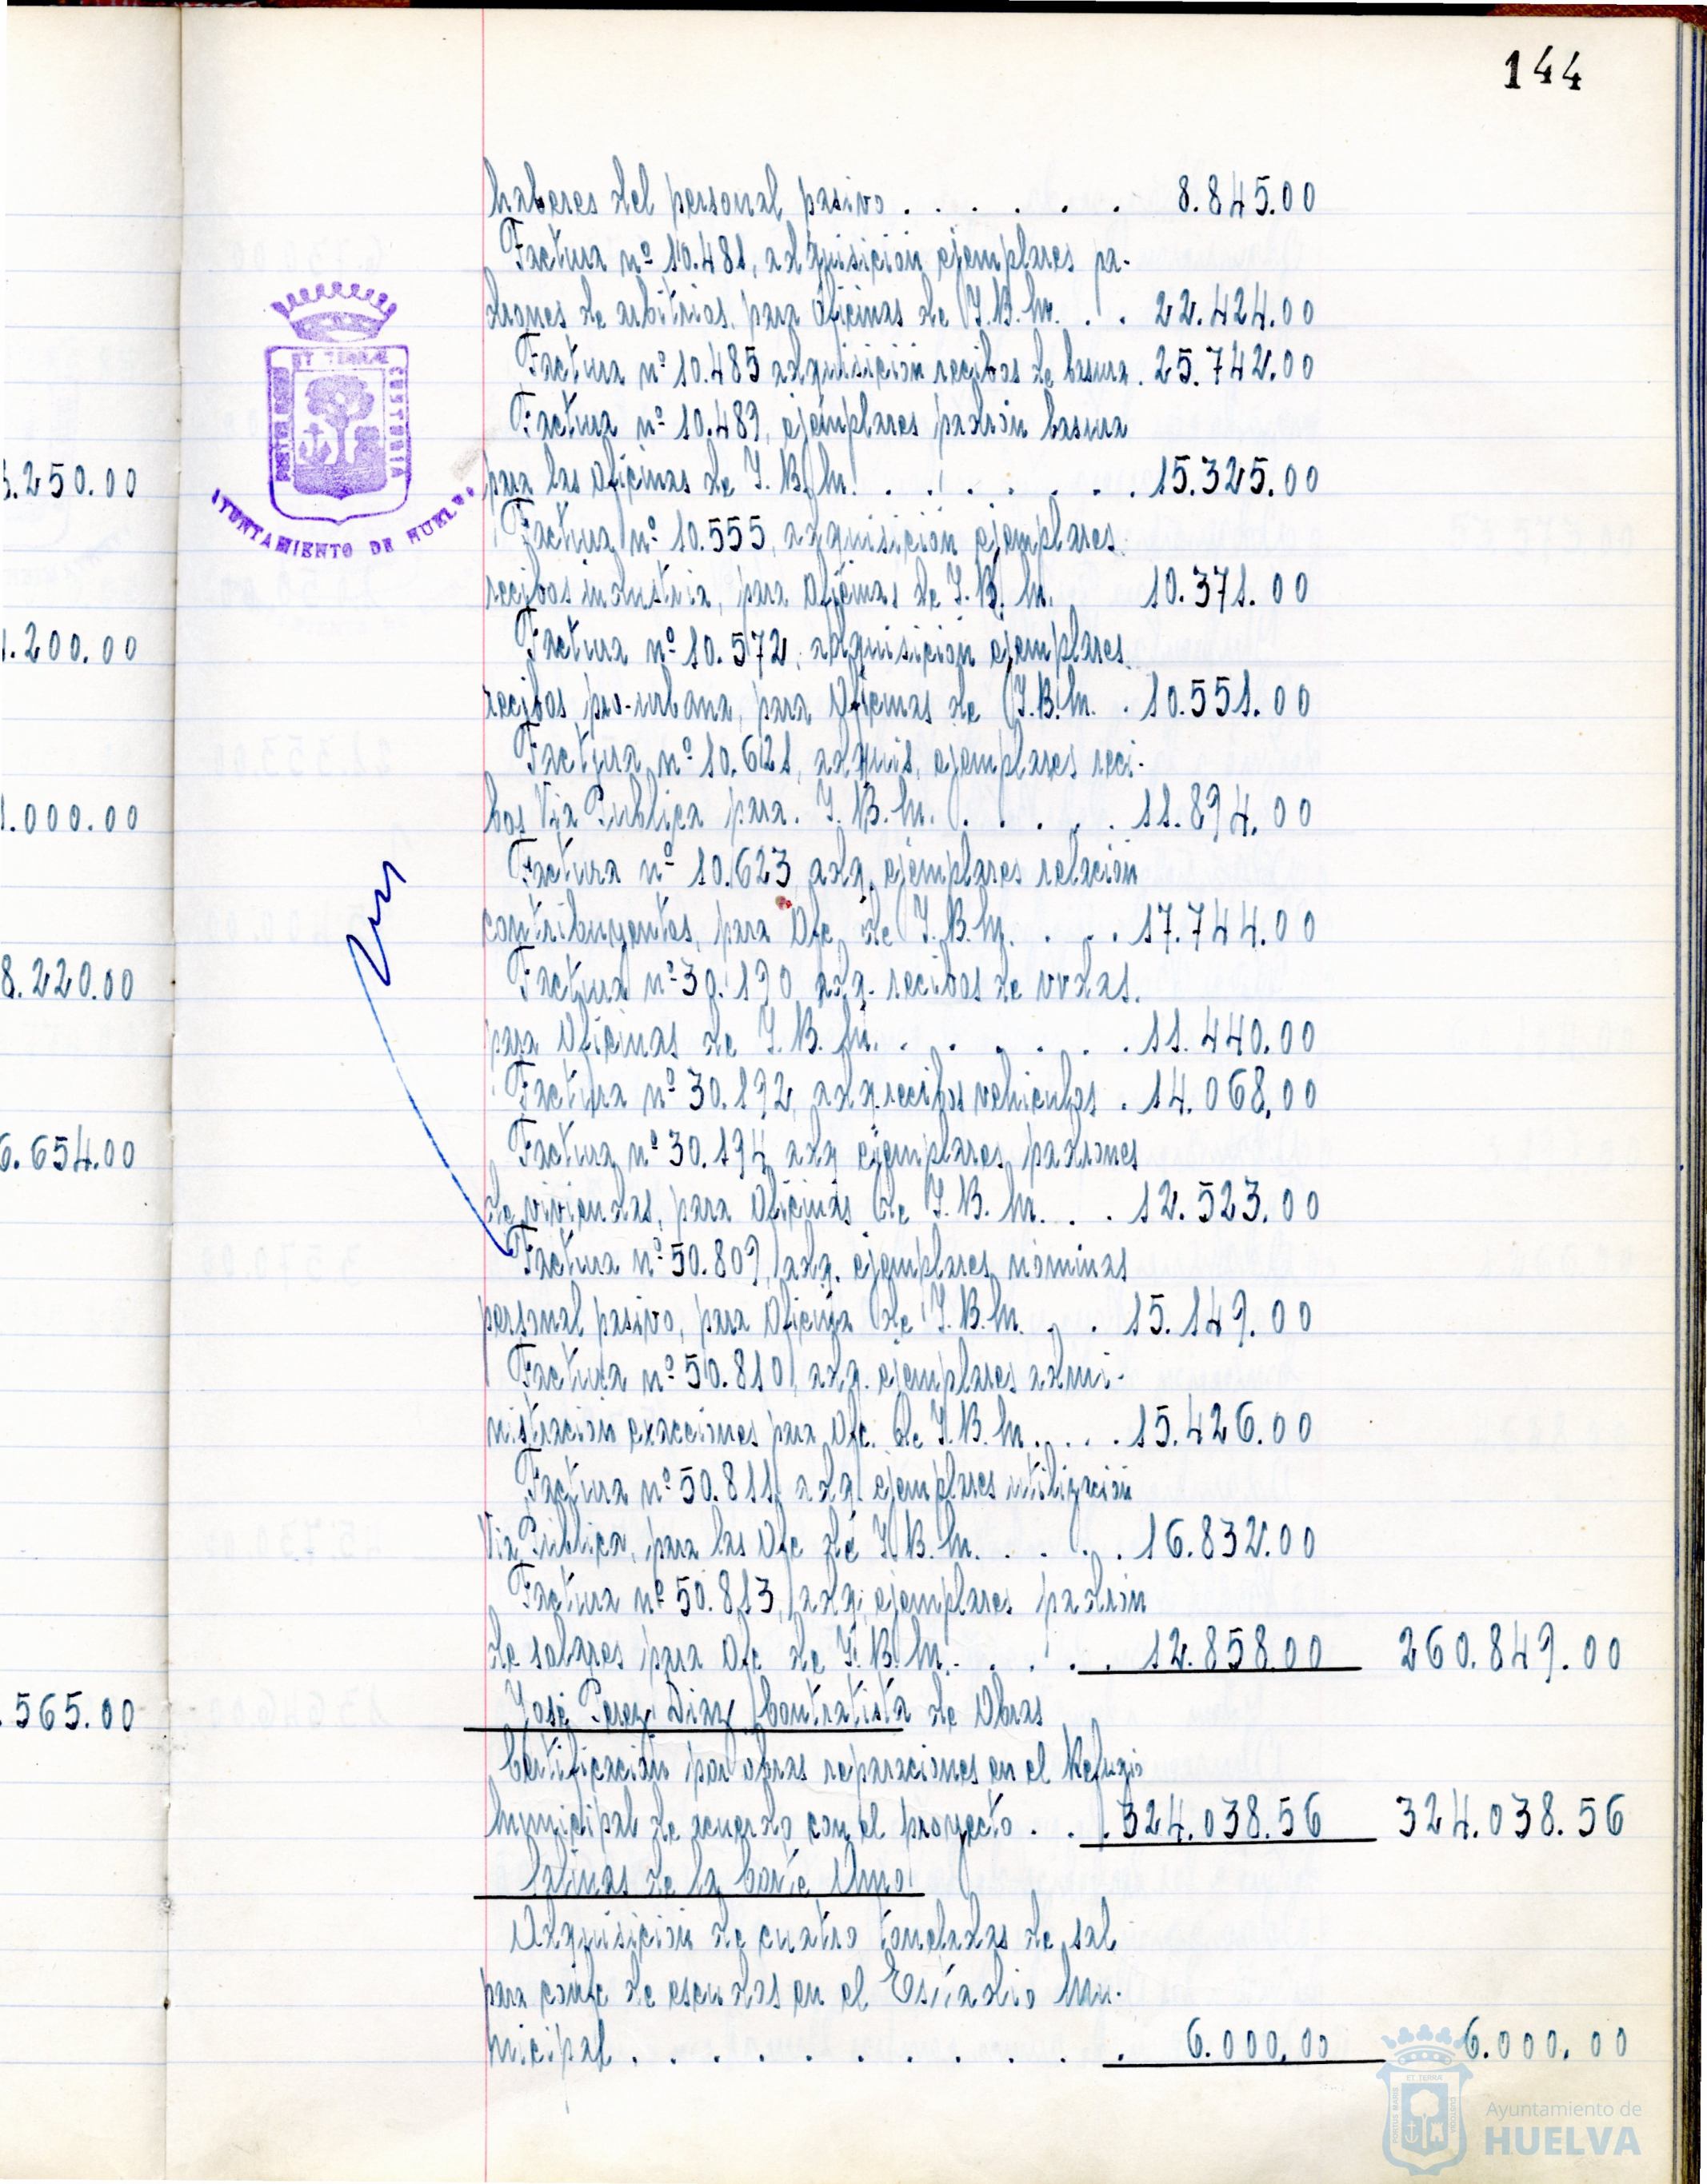 144
3.250.00
1.200.00
1.000.00
8.220.00
6.654.00
.565.00
ET TERRÆ
CUSTODIA
AYUNTAMIENTO DE HUELVA
haberes del personal pasivo . . . . . . 8.845.00
Factura nº 10.481, adquisición ejemplares pa-
drones de arbitrios, para Oficinas de I.B.M. . . 22.424.00
Factura nº 10.485 adquisición recibos de basura. 25.742.00
Factura nº 10.489, ejemplares padrón basura
para las Oficinas de I.B.M. . . . . . . 15.325.00
Factura nº 10.555, adquisición ejemplares
recibos industria, para Oficinas de I.B.M. 10.371.00
Factura nº 10.572, adquisición ejemplares
recibos pro-urbana, para Oficinas de I.B.M. . 10.551.00
Factura nº 10.621, adquis. ejemplares reci-
bos Via Publica para. I.B.M. . . . . . 11.894.00
Factura nº 10.623 adq. ejemplares relación
contribuyentes, para Ofc. de I.B.M. . . . 17.744.00
Factura nº 30.190 adq. recibos de vvdas.
para Oficinas de I.B.M. . . . . . . 11.440.00
Factura nº 30.192, adq. recibos vehiculos . 14.068,00
Factura nº 30.194 adq ejemplares padrones
de viviendas, para Oficinas de I.B.M. . . 12.523.00
Factura nº 50.809, adq. ejemplares nóminas
personal pasivo, para Oficina de I.B.M. . . 15.149.00
Factura nº 50.810, adq. ejemplares admi-
nistración exacciones para Ofc. de I.B.M. . . . 15.426.00
Factura nº 50.811, adq. ejemplares utilización
Via Pública, para las Ofc de I.B.M. . . . . 16.832.00
Factura nº 50.813, adq. ejemplares padrón
de solares para Ofc de I.B.M. . . . . 12.858.00 260.849.00
José Perez Diaz Contratista de Obras
Certificación por obras reparaciones en el Refugio
Municipal de acuerdo con el proyecto . . . 324.038.56 324.038.56
Salinas de la
Adquisición de cuatro toneladas de sal
para de en el Estadio Mu-
nicipal . . . . . . . . . . 6.000.00 6.000.00
Ayuntamiento de
HUELVA